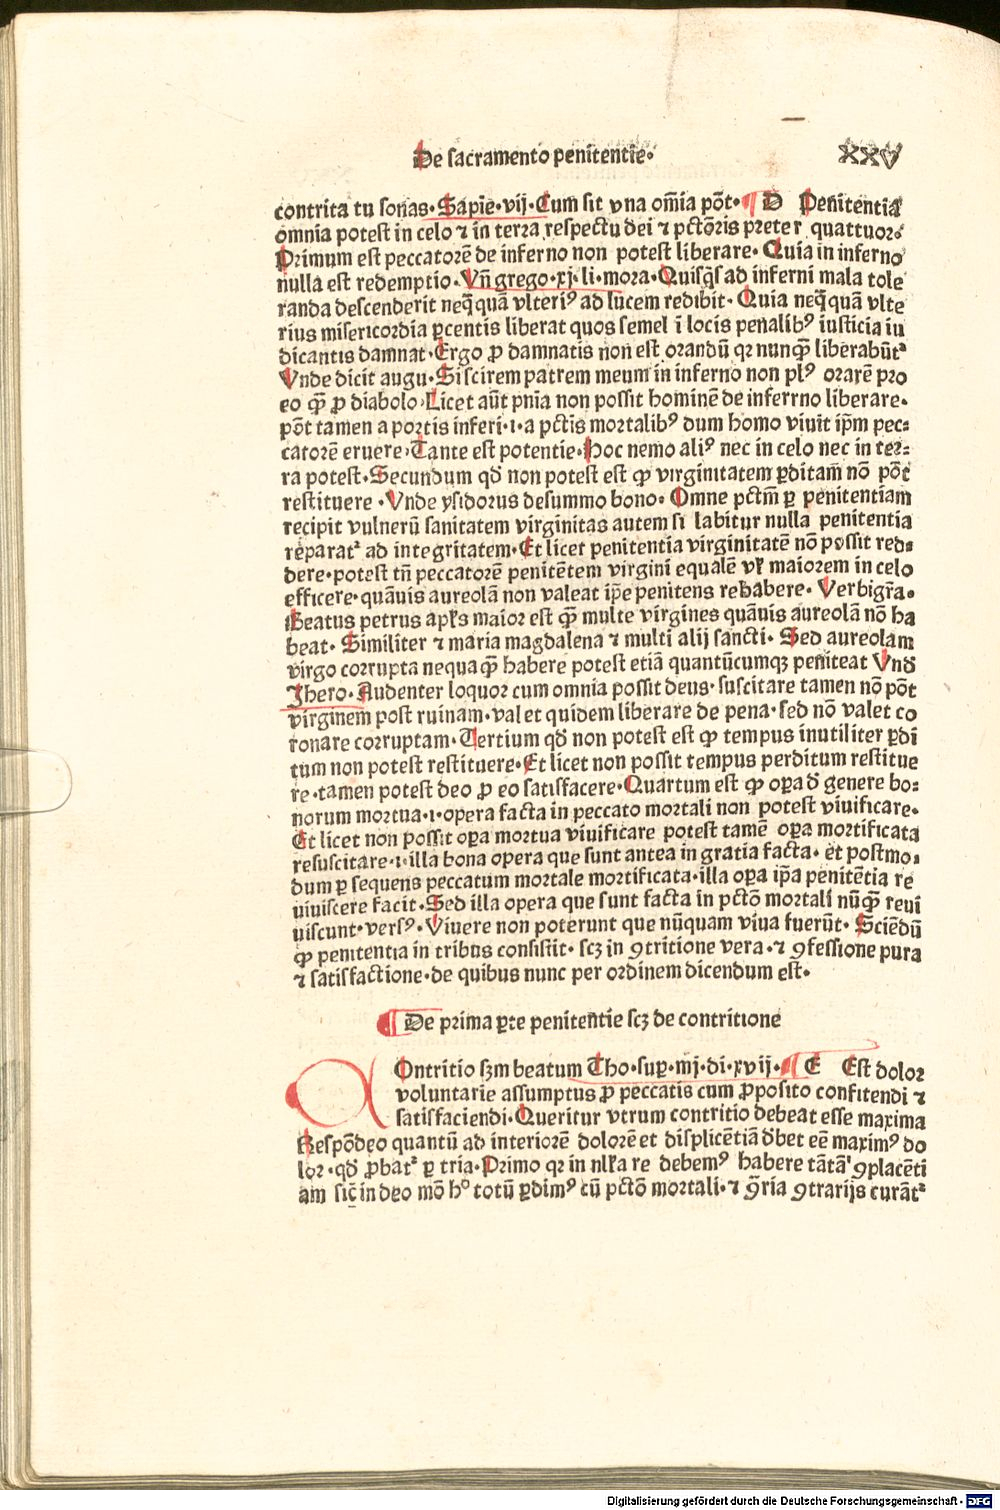 De sacramento penitentie.
XXV
contrita tu sonas. Sapie. vij. Cum sit vna om̄ia pōt. ¶ D Penitentia
omnia potest in celo ⁊ in terra respectu dei ⁊ pctōris preter quattuor.
Primum est peccatorē de inferno non potest liberare. Quia in inferno
nulla est redemptio. Vn̄ grego. xj. li. mora. Quisq̄s ad inferni mala tole
randa descenderit neq̄quā vlteriꝰ ad lucem redibit. Quia neq̄quā vlte
rius misericordia ꝑcentis liberat quos semel ī locis penalibꝰ iusticia iu
dicantis damnat. Ergo ꝓ damnatis non est orandū qꝛ nunqm̄ liberabūtᷣ
Vnde dicit augu. Si scirem patrem meum in inferno non plꝰ orarē pro
eo qm̄ ꝓ diabolo. Licet aūt pn̄ia non possit hominē de inferrno liberare.
pōt tamen a portis inferi .i. a pctīs mortalibꝰ dum homo viuit ip̄m pec⸗
catorē eruere. Tante est potentie. Hoc nemo aliꝰ nec in celo nec in ter⸗
ra potest. Secundum qd̄ non potest est ꝙ virginitatem ꝑditam̄ nō pōt
restituere. Vnde ysidorus de summo bono. Omne pctm̄ ꝑ penitentiam
recipit vulnerū sanitatem virginitas autem si labitur nulla penitentia
reparatᷣ ad integritatem. Et licet penitentia virginitatē nō possit red⸗
dere. potest tn̄ peccatorē penitētem virgini equalē vl̓ maiorem in celo
efficere. quāuis aureolā non valeat ip̄e penitens rehabere. Verbigr̄a.
Beatus petrus apl̓s maior est qm̄ multe virgines quāuis aureolā nō ha
beat. Similiter ⁊ maria magdalena ⁊ multi alij sancti. Sed aureolam
virgo corrupta nequaqm̄ habere potest etiā quantūcumqꝫ peniteat Vnd̄
Jhero. Audenter loquor cum omnia possit deus. suscitare tamen nō pōt
virginem post ruinam. valet quidem liberare de pena. sed nō valet co
ronare corruptam. Tertium qd̄ non potest est ꝙ tempus inutiliter ꝑdi
tum non potest restituere. Et licet non possit tempus perditum restitue
re. tamen potest deo ꝓ eo satisfacere. Quartum est ꝙ oꝑa d̄ genere bo⸗
norum mortua .i. opera facta in peccato mortali non potest viuificare.
Et licet non possit oꝑa mortua viuificare potest tamē oꝑa mortificata
resuscitare .i. illa bona opera que sunt antea in gratia facta. et postmo⸗
dum ꝑ sequens peccatum mortale mortificata. illa oꝑa ip̄a penitētia re
uiuiscere facit. Sed illa opera que sunt facta in pctō mortali nūqm̄ reui
uiscunt. versꝰ. Viuere non poterunt que nūquam viua fuerūt. Sciēdū
ꝙ penitentia in tribus consistit. scꝫ in ꝯtritione vera. ⁊ ꝯfessione pura
⁊ satisfactione. de quibus nunc per ordinem dicendum est.
¶ De prima ꝑte penitentie scꝫ de contritione
COntritio sꝫm beatum Tho. suꝑ. iiij. di. xvij. ¶ E Est dolor
voluntarie assumptus ꝓ peccatis cum ꝓposito confitendi ⁊
satisfaciendi. Queritur vtrum contritio debeat esse maxima
Respōdeo quantū ad interiorē dolorē et displicētiā dꝫbet eē maximꝰ do
lor. qd̄ ꝓbatᷣ ꝑ tria. Primo qꝛ in nl̓la re debemꝰ habere tātā ꝯplacēti
am sic̄ in deo mō hͦ totū ꝑdimꝰ cū pctō mortali. ⁊ ꝯ̄ria ꝯtrarijs curātᷣ
Digitalisierung gefördert durch die Deutsche Forschungsgemeinschaft - DFG